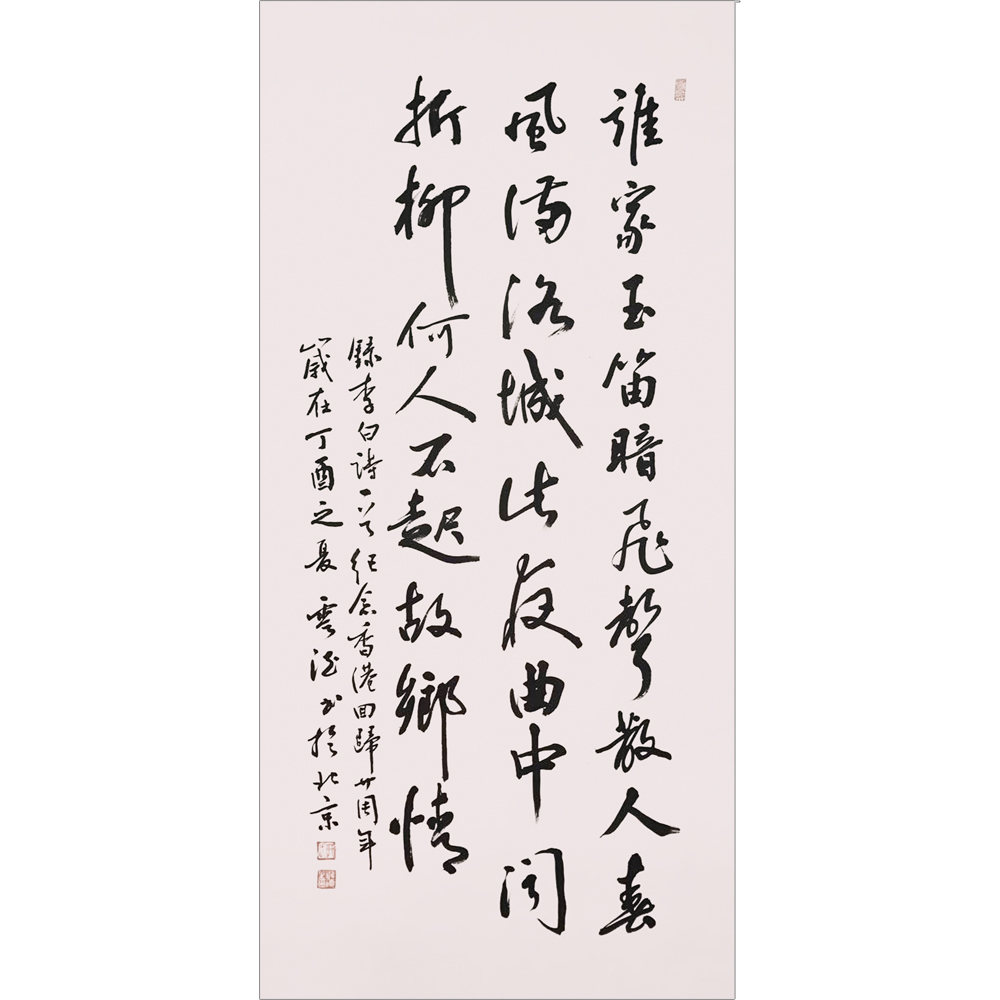 誰家玉笛暗飛聲散入春
風滿洛城此夜曲中聞
折柳何人不起故鄉情
錄李白詩一首紀念香港回歸廿周年
歲在丁酉之夏雲書於北京